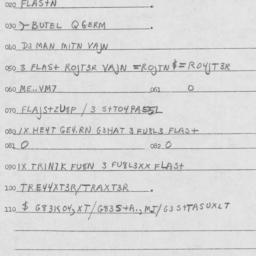 020 FLAS+N .
030 >-BUTEL QGERM .
040 DJ MAN MITN VAJN
050 3 FLAS+ ROJT3R VAJN =ROJTN $=ROYJT3R
060 ME..VM7 061 0
070 FLAJS+ZUEP / 3 S++O4PA
080 /X HE4T GE4.RN G3HAT 3 FU8L3 FLAS+
081 0 082 0
090 IX TRIN7K FU8N 3 FU8L3XX FLAS+
100 TRE44XT3R/TRAXT3R .
110 $ G83K04,XT/G83S+A.,MJ/G3S+TASUXLT